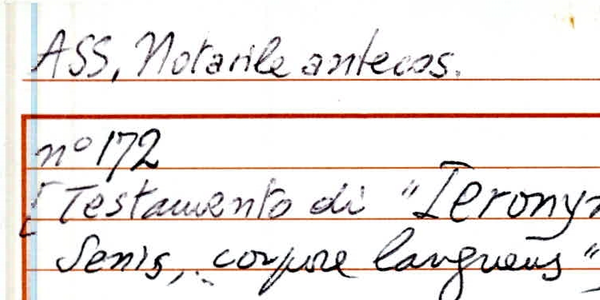 ASS, Notarile antecos.
n° 172
[Testamento di "Ieronym
Senis, corpore languens"